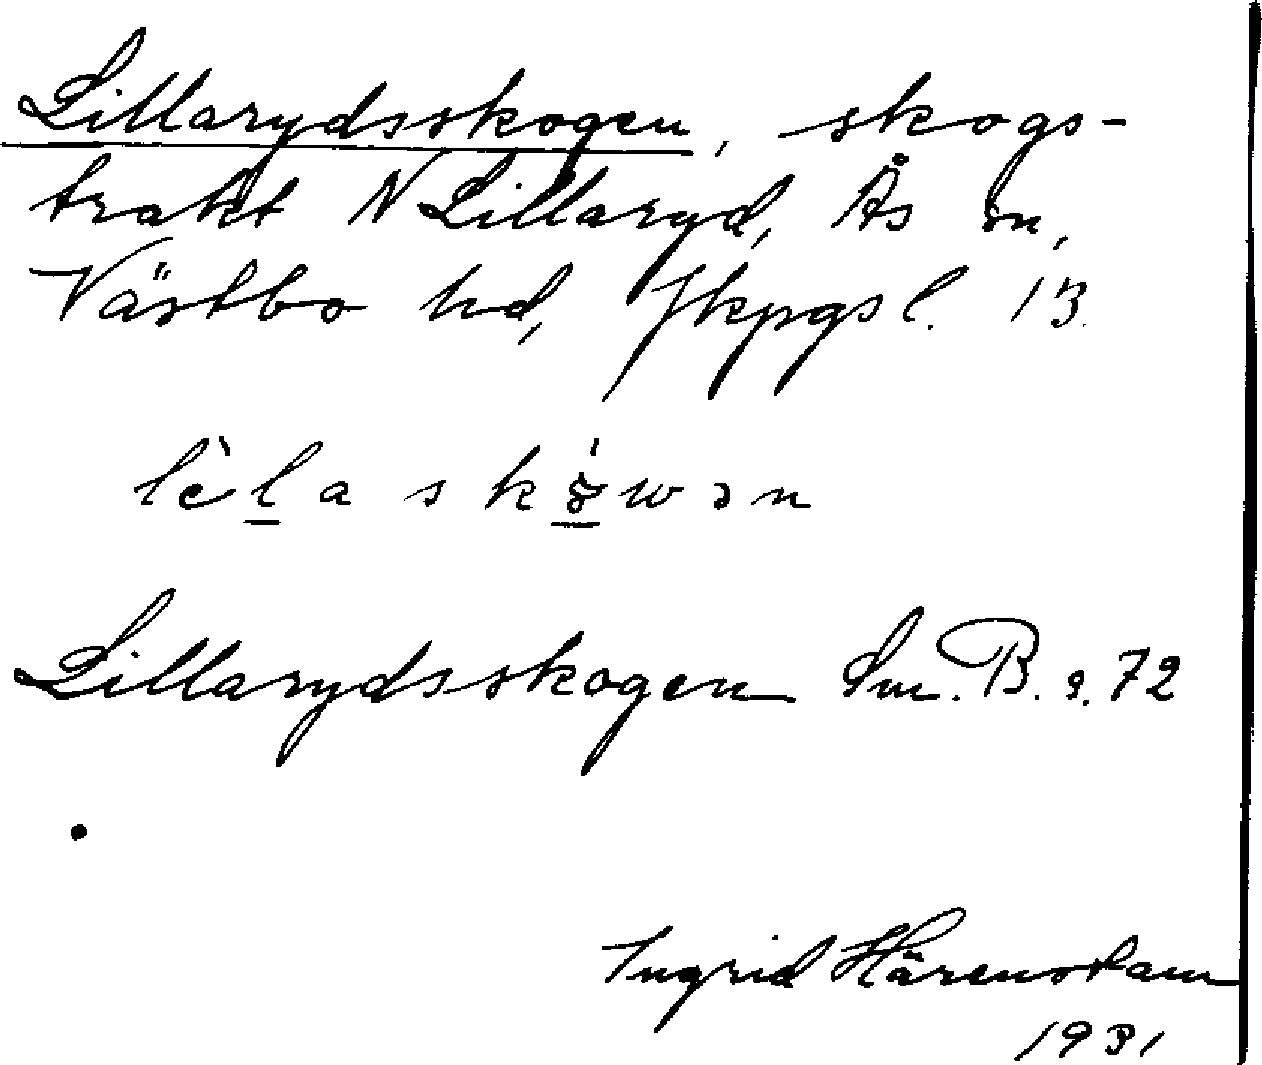 Lillarydsskogen, skogs-
trakt N Lillaryd, Ås sn,
Västbo hd, Jkpgs l. 13.
lèla skówən
Lillarydsskogen Sm. B. s. 72
Ingrid Härenstam
1931